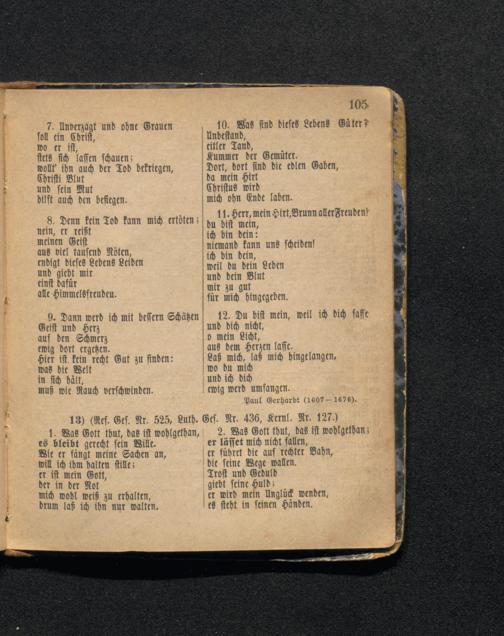 105
7. Unverzagt und ohne Grauen
soll ein Christ,
wo er ist,
stets sich lassen schauen;
wollt' ihn auch der Tod bekriegen,
Christi Blut
und sein Mut
hilft auch den besiegen.
8. Denn kein Tod kann mich ertöten;
nein, er reißt
meinen Geist
aus viel tausend Nöten,
endigt dieses Lebens Leiden
und giebt mir
einst dafür
alle Himmelsfreuden.
9. Dann werd ich mit bessern Schätzen
Geist und Herz
auf den Schmerz
ewig dort ergetzen.
Hier ist kein recht Gut zu finden:
was die Welt
in sich hält,
muß wie Rauch verschwinden.
10. Was sind dieses Lebens Güter?
Unbestand,
eitler Tand,
Kummer der Gemüter.
Dort, dort sind die edlen Gaben,
da mein Hirt
Christus wird
mich ohn Ende laben.
11. Herr, mein Hirt, Brunn aller Freuden!
du bist mein,
ich bin dein:
niemand kann uns scheiden!
ich bin dein,
weil du dein Leben
und dein Blut
mir zu gut
für mich hingegeben.
12. Du bist mein, weil ich dich fasse
und dich nicht,
o mein Licht,
aus dem Herzen lasse.
Laß mich, laß mich hingelangen,
wo du mich
und ich dich
ewig werd umfangen.
Paul Gerhardt (1607—1676).
13) (Ref. Ges. Nr. 525, Luth. Ges. Nr. 436, Kernl. Nr. 127.)
1. Was Gott thut, das ist wohlgethan,
es bleibt gerecht sein Wille.
Wie er fängt meine Sachen an,
will ich ihm halten stille;
er ist mein Gott,
der in der Not
mich wohl weiß zu erhalten,
drum laß ich ihn nur walten.
2. Was Gott thut, das ist wohlgethan;
er lässet mich nicht fallen,
er führet die auf rechter Bahn,
die seine Wege wallen.
Trost und Geduld
giebt seine Huld;
er wird mein Unglück wenden,
es steht in seinen Händen.